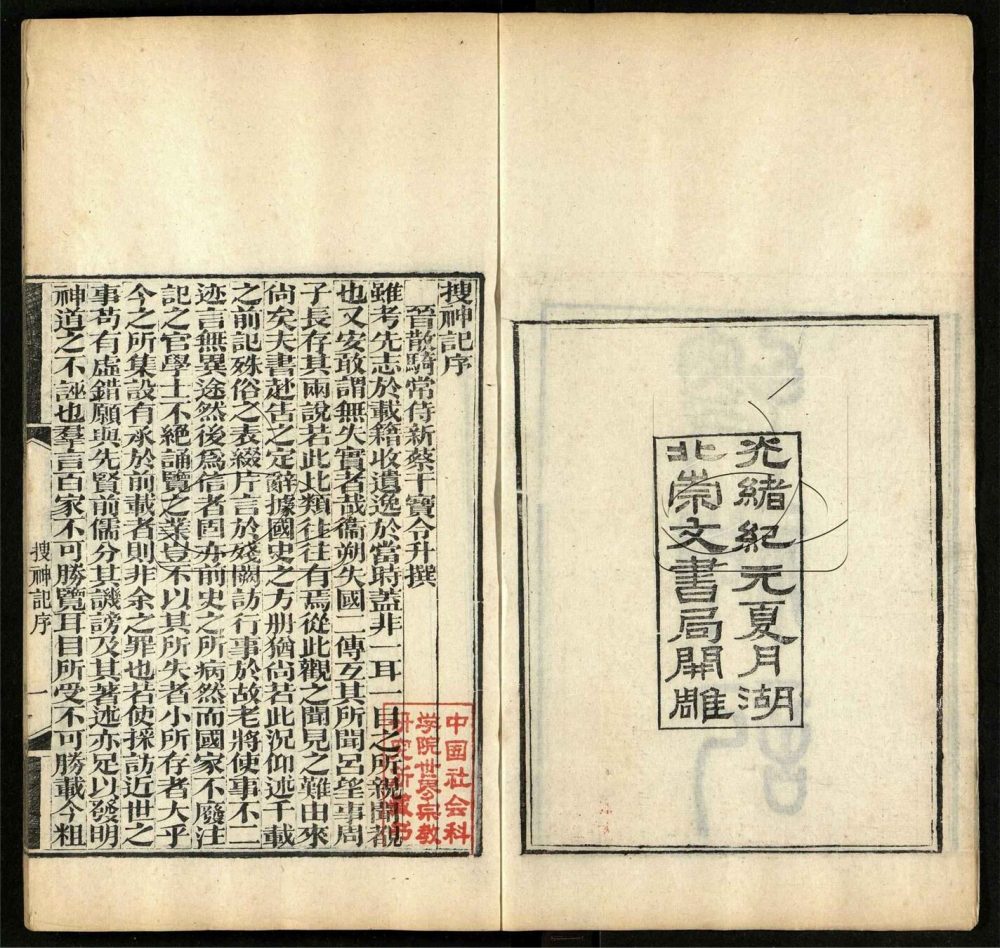 光緒紀元夏月湖
北崇文書局開雕
搜神記序
晉散騎常侍新蔡干寶令升撰
雖考先志於載籍收遺逸於當時蓋非一耳一目之所親聞覩
也又安敢謂無失實者哉衞朔失國二傳互其所聞呂望事周
子長存其兩說若此比類往往有焉從此觀之聞見之難由來
尙矣夫書赴告之定辭據國史之方册猶尙若此況仰述千載
之前記殊俗之表綴片言於殘闕訪行事於故老將使事不二
迹言無異途然後爲信者固亦前史之所病然而國家不廢注
記之官學士不絕誦覽之業豈不以其所失者小所存者大乎
今之所集設有承於前載者則非余之罪也若使採訪近世之
事苟有虛錯願與先賢前儒分其譏謗及其著述亦足以發明
神道之不誣也羣言百家不可勝覽耳目所受不可勝載今粗
搜神記序
一
中国社会科
学院世界宗教
研究所藏书